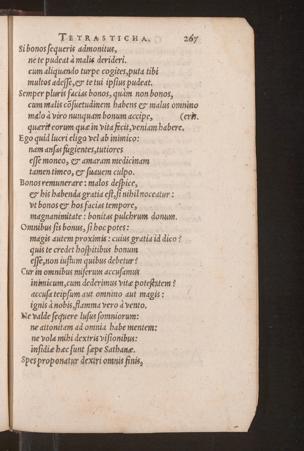 TETRASTICHA. 267
Si bonos sequeris admonitus,
ne te pudeat à malis derideri.
cum aliquando turpe cogites, puta tibi
multos adesse, & te tui ipsius pudeat.
Semper pluris facias bonos, quàm non bonos,
cum malis cõsuetudinem habens & malus omnino
malo à viro nunquam bonum accipe, (erit.
quærit eorum quæ in vita fecit, veniam habere.
Ego quid lucri eligo vel ab inimico:
nam ansas fugientes, tutiores
esse moneo, & amaram medicinam
tamen timeo, & suauem culpo.
Bonos remunerare: malos despice,
& his habenda gratia est, si nihil noceatur:
vt bonos & hos facias tempore,
magnanimitate: bonitas pulchrum donum.
Omnibus sis bonus, si hoc potes:
magis autem proximis: cuius gratia id dico?
quis te credet hospitibus bonum
esse, non iustum quibus debetur?
Cur in omnibus miserum accusamus
inimicum, cum dederimus vitæ potestatem?
accusa teipsum aut omnino aut magis:
ignis à nobis, flamma vero à vento.
Ne valde sequere lusus somniorum:
ne attonitam ad omnia habe mentem:
ne vola mihi dextris visionibus:
insidiæ hæc sunt sæpe Sathanæ.
Spes proponatur dextri omnis finis,